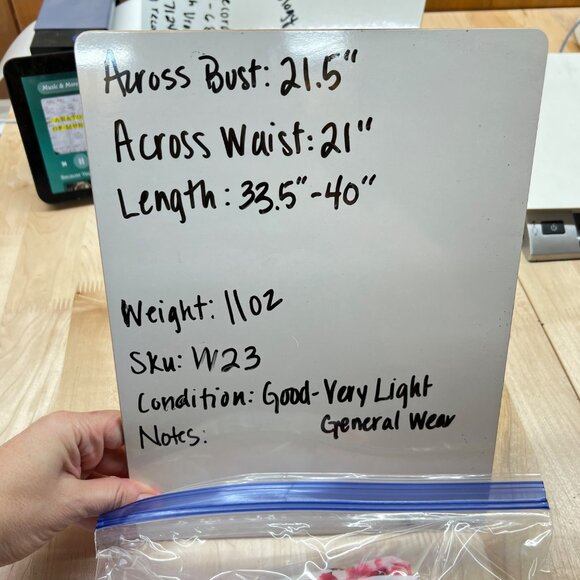 Music & More
Across Bust: 21.5"
Across Waist: 21"
Length: 33.5"-40"
Weight: 11oz
Sku: W23
Condition: Good-Very Light
General Wear
Notes: